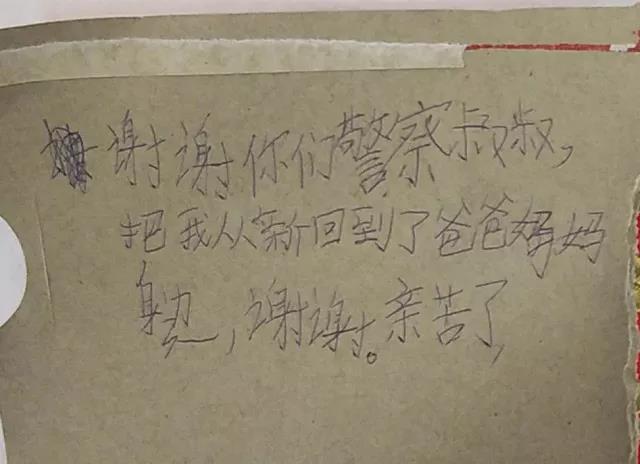 谢谢你们警察叔叔，
把我从新回到了爸爸妈妈
身边，谢谢。亲苦了